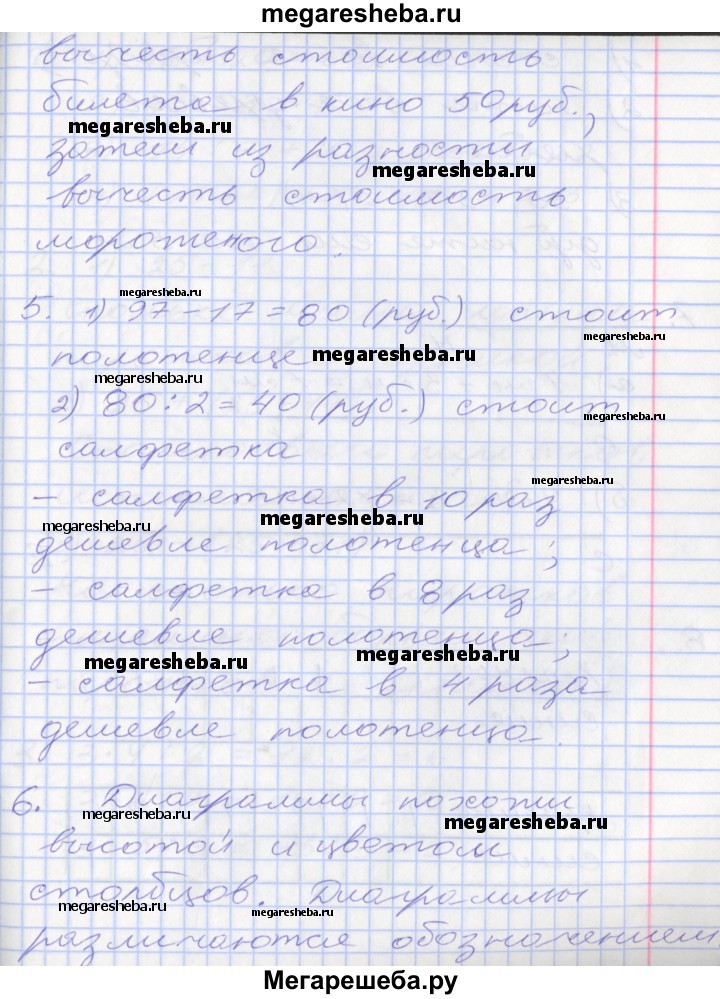 megaresheba.ru
вычесть стоимость
билета в кино 50 руб.,
megaresheba.ru
затем из разности
megaresheba.ru
вычесть стоимость
мороженого.
megaresheba.ru
5. 1) 97 - 17 = 80 (руб.) стоит
megaresheba.ru
полотенце
megaresheba.ru
megaresheba.ru
2) 80 : 2 = 40 (руб.) стоит
megaresheba.ru
салфетка
megaresheba.ru
- салфетка в 10 раз
megaresheba.ru
megaresheba.ru
дешевле полотенца;
- салфетка в 8 раз
дешевле полотенца;
megaresheba.ru
megaresheba.ru
- салфетка в 4 раза
дешевле полотенца.
6. Диаграммы похожи
megaresheba.ru
megaresheba.ru
высотой и цветом
столбцов. Диаграммы
megaresheba.ru
megaresheba.ru
различаются обозначением
Мегарешеба.ру